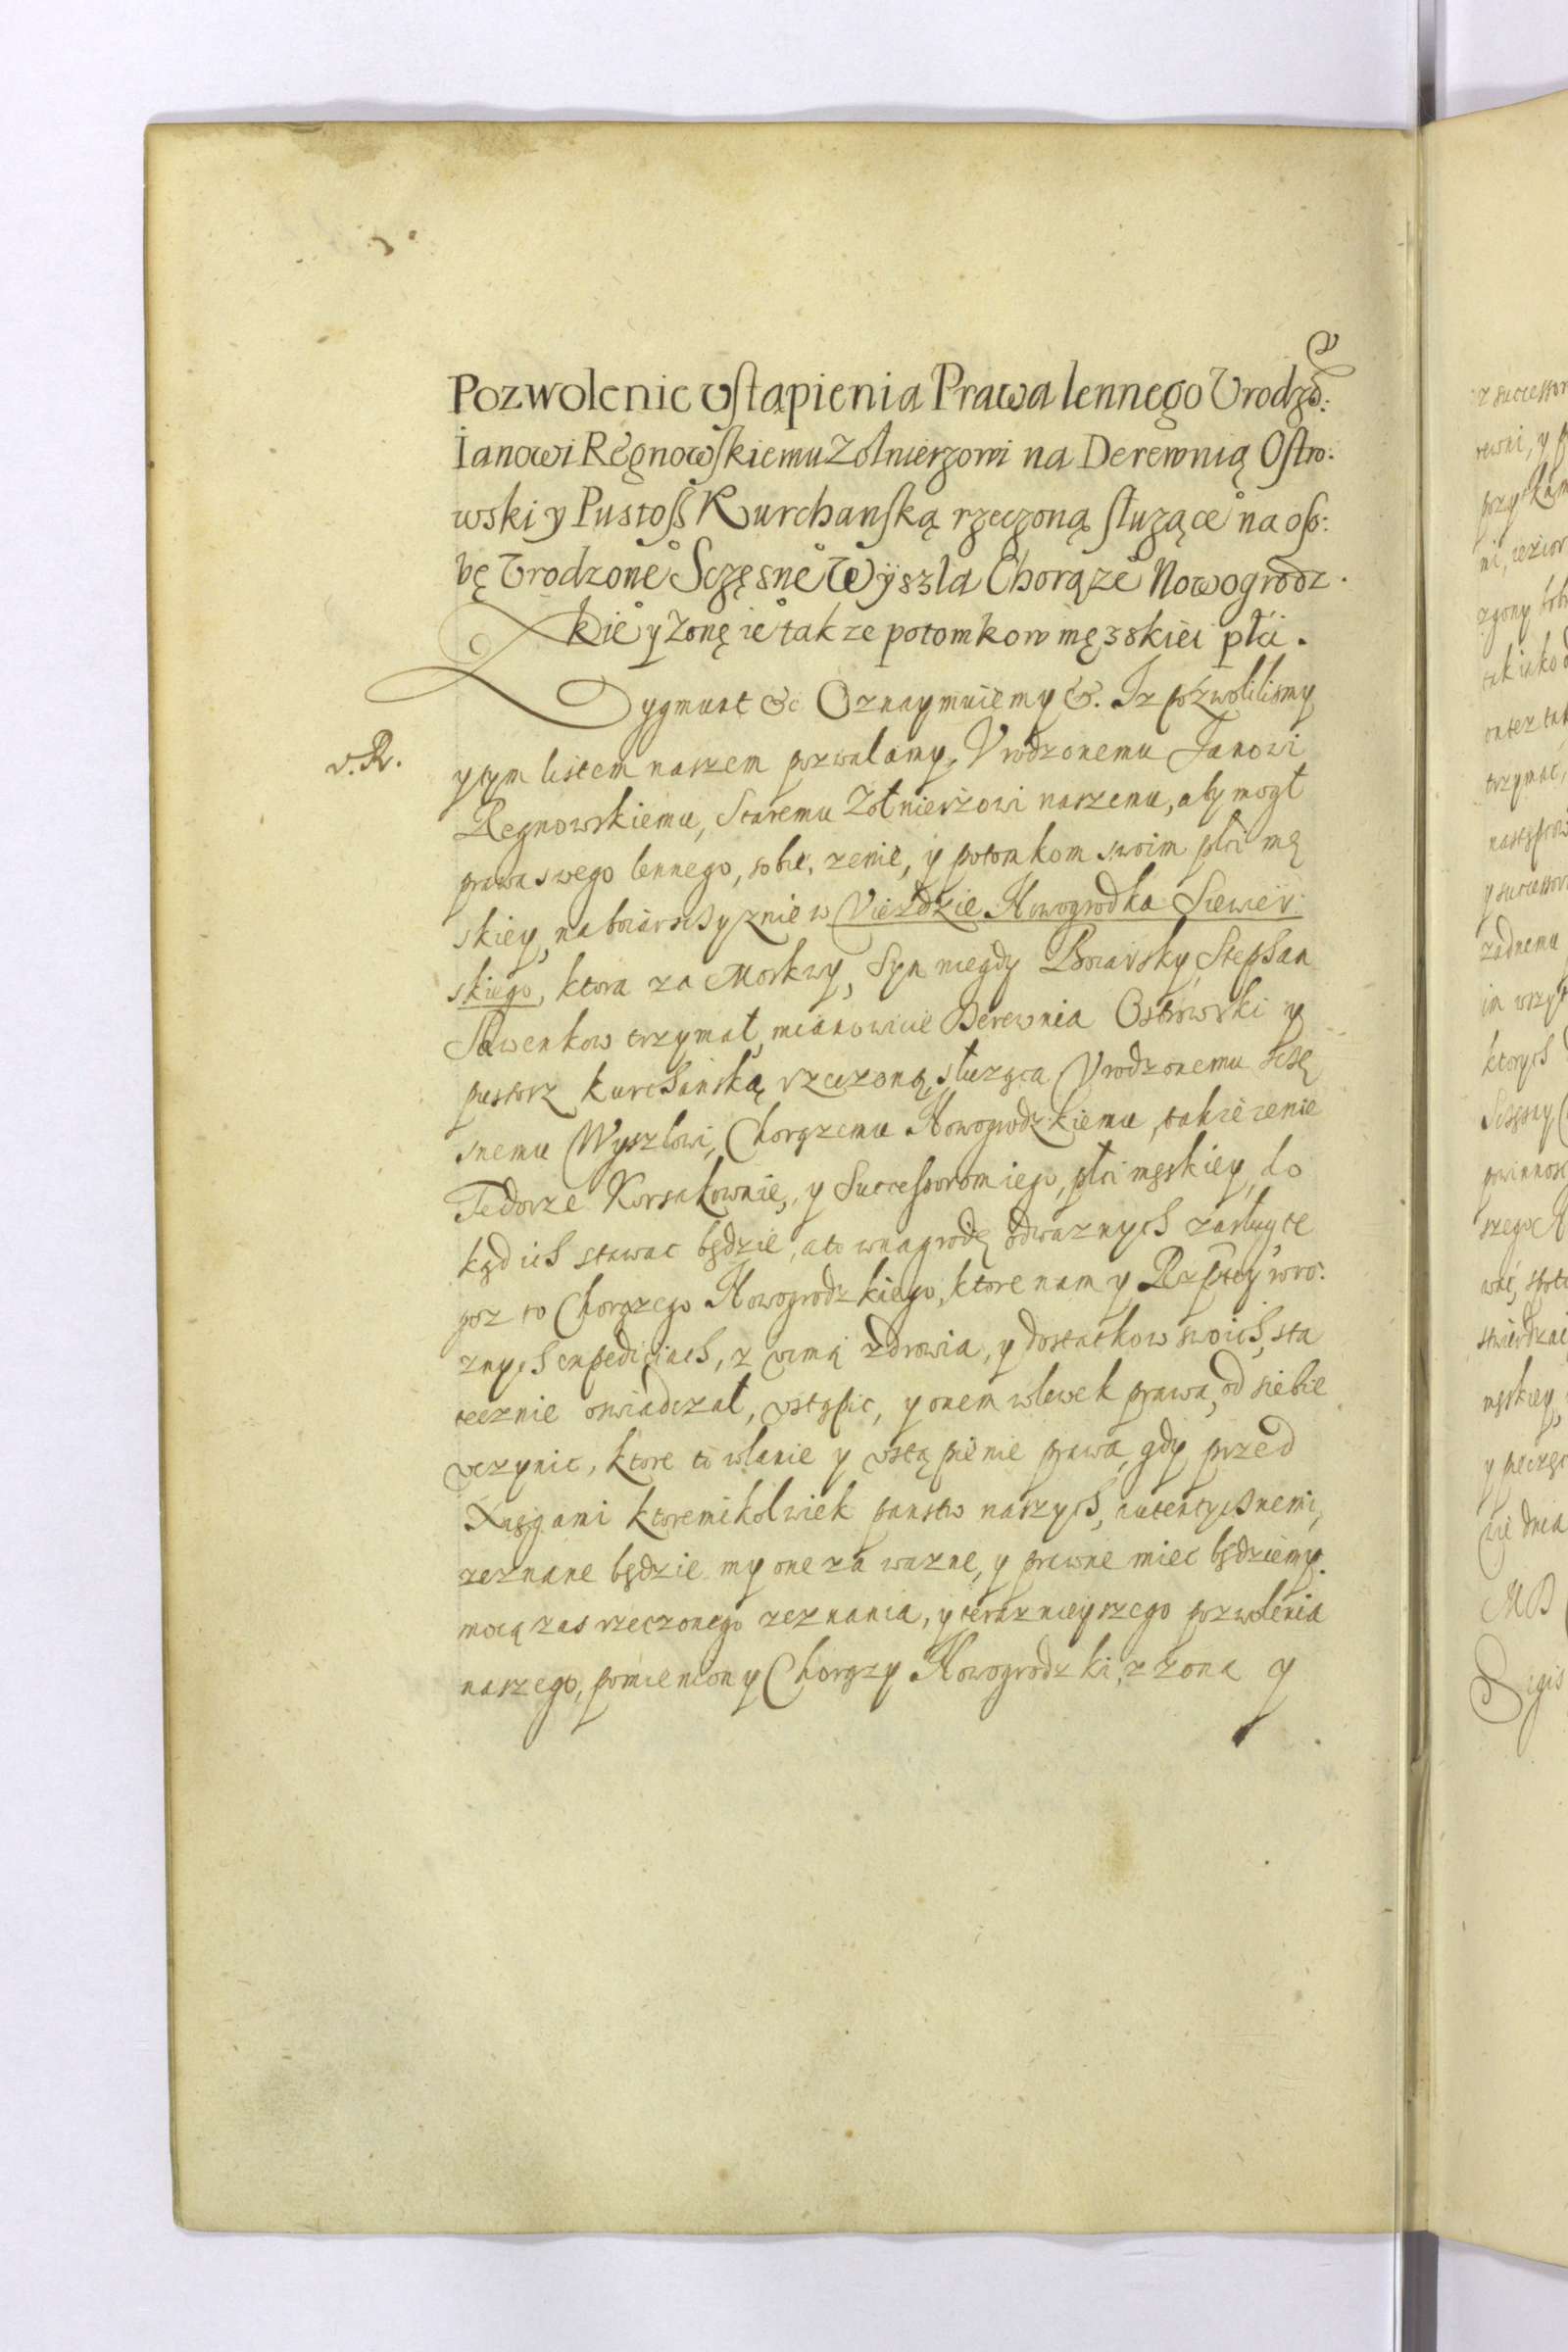 Pozwolenie vstąpienia Prawa lennego Vrodzo:
Ianowi Regnowskiemu Zolnierzowi na Derewnią Ostro:
wski y Pustosz Kurchanską rzeczoną służące na oso:
bę Vrodzone Sczęsne Wyszla Chorąze Nowogrodz.
kie y Zonę ie takze potomkow męzskiei płci.
Zygmunt &c Oznaymuiemy &. Iz pozwolilismy
v. R.
y tym listem naszem pozwalamy, Vrodzonemu Janowi
Regnowskiemu, Staremu Zołnierzowi naszemu, aby mogł
prawa swego lennego, sobie, zenie, y potomkom swoim płci mę
skiey, na boiarsczyznie w Vieździe Nowogrodka Siewier
skiego, ktora za Moskwy, Syn niegdy Boiarsky, Stephan
Sawenkow trzymał, mianowicie Derewnia Ostrowski y
pustosz Kurchanską rzeczoną, służąca Vrodzonemu Sczę
snemu Wyszlowi, Chorązemu Nowogrodzkiemu, takze zenie
Fedorze Korsakownie, y Successorom iego, płci męskiey, do
kąd ich stawac będzie, a to w nagrodę odwaznych zasług te
goz to Chorązego Nowogrodzkiego, ktore nam y Rzptey w ro:
znych expediciach, z vimą zdrowia, y dostatkow swoich, sta
tecznie oswiadczał, vstąpic, y onem wlewek prawa, od siebie
vczynic, ktore to wlanie y vstąpienie prawa, gdy przed
Xięgami ktoremikolwiek panstw naszych, autentycznemi,
zeznane będzie my one za wazne, y prawne miec będziemy.
mocą zas rzeczonego zeznania, y teraznieyszego pozwolenia
naszego, pomieniony Chorązy Nowogrodzki, z zona y